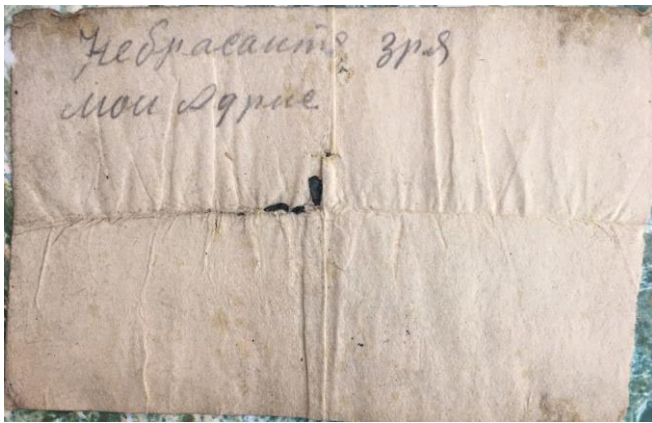 Небрасаите зря
мои Адрис